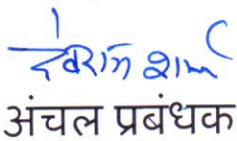 देवराज शर्मा
अंचल प्रबंधक